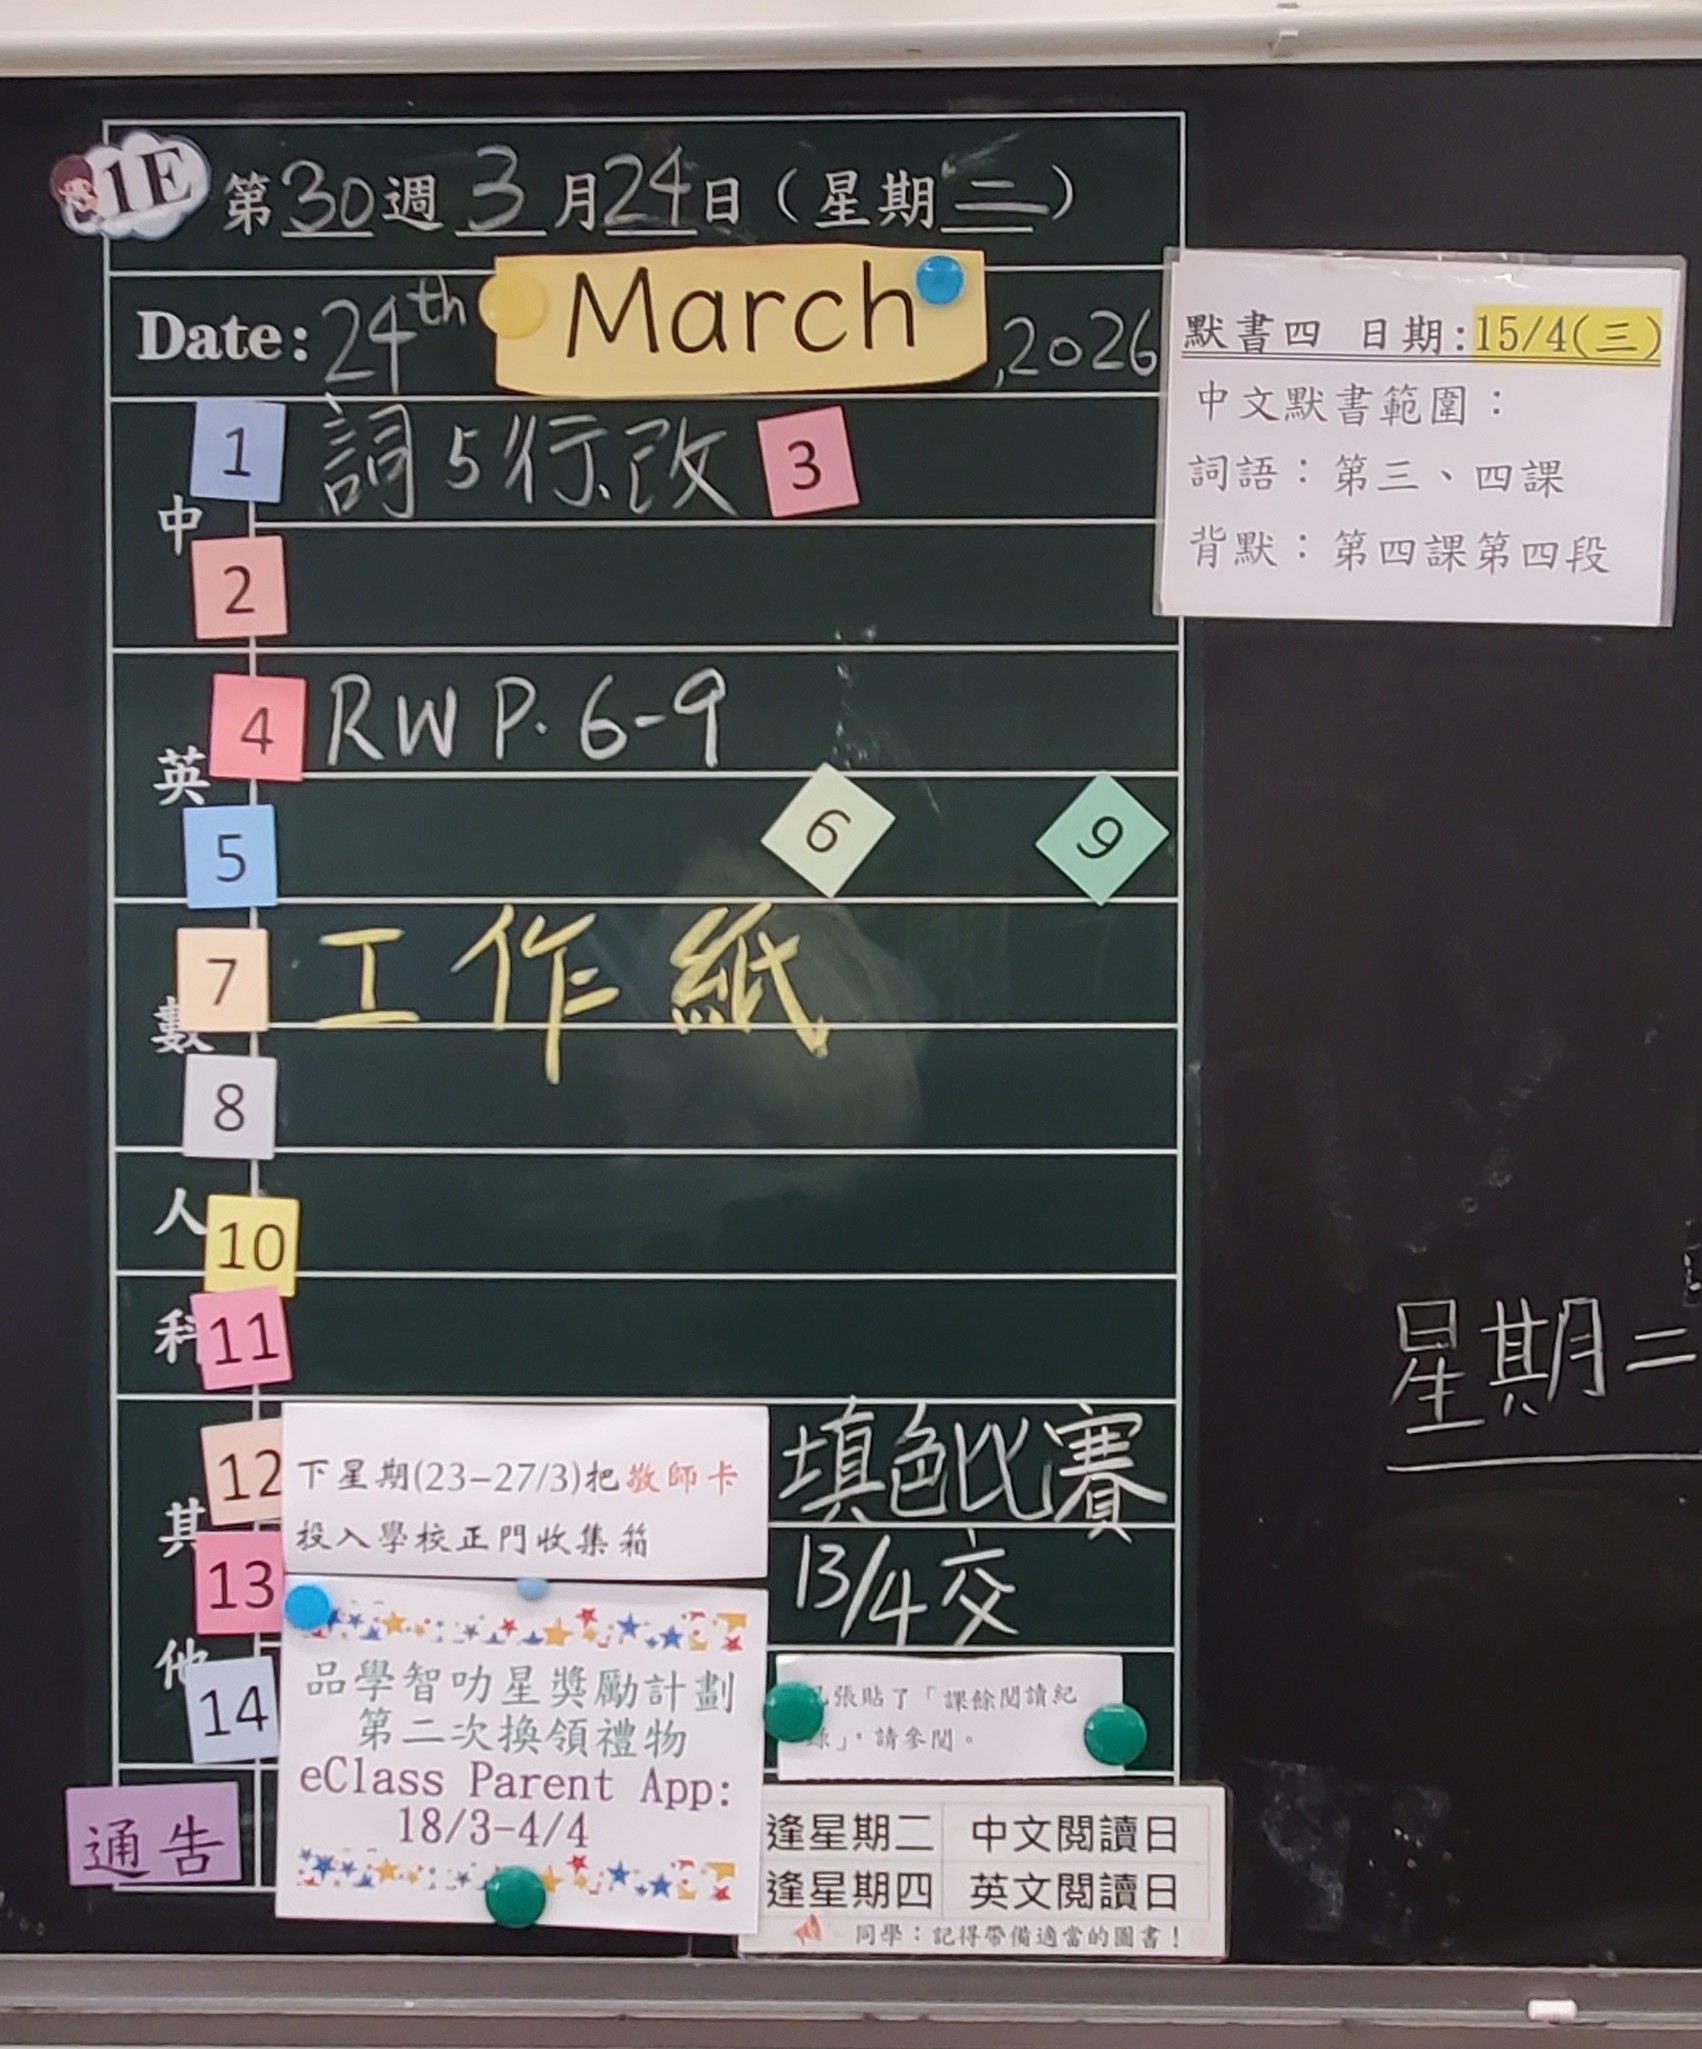 1E
第30週 3月24日(星期二)
Date: 24th March, 2026
中
1 詞5行.改 3
2
英
4 RW P. 6-9
5 6 9
數
7 工作紙
8
人
10
科
11
其他
12
13
14
下星期(23-27/3)把敬師卡
投入學校正門收集箱
填色比賽
13/4交
品學智叻星獎勵計劃
第二次換領禮物
eClass Parent App:
18/3-4/4
已張貼了「課餘閱讀紀
錄」,請參閱。
通告
逢星期二 中文閱讀日
逢星期四 英文閱讀日
同學:記得帶備適當的圖書!
默書四 日期:15/4(三)
中文默書範圍:
詞語:第三、四課
背默:第四課第四段
星期二